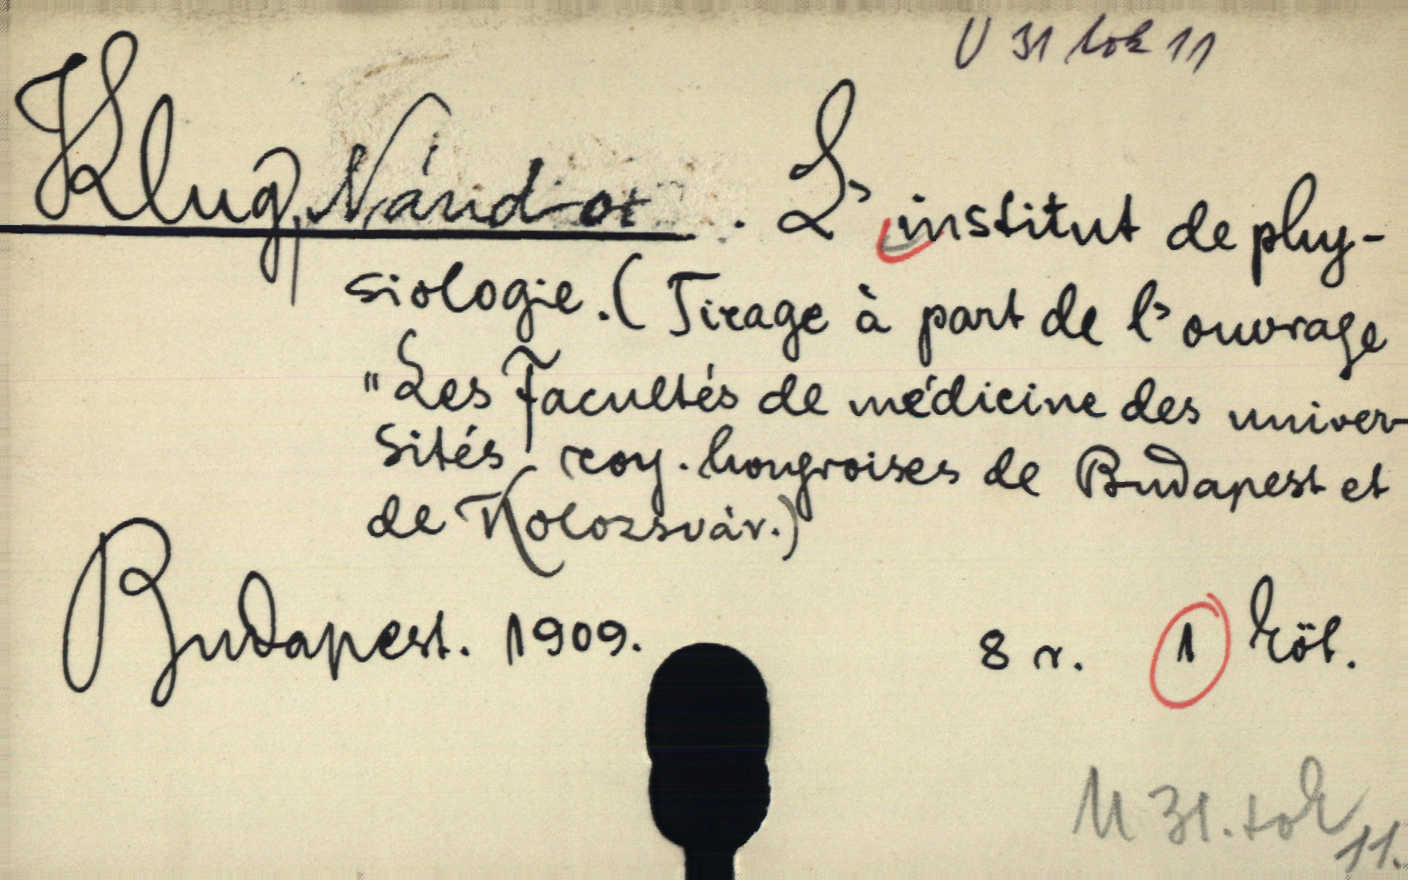 U 31 tok 11
Klug, Nándor. L'institut de phy-
siologie. (Tirage à part de l'ouvrage
"Les Facultés de médicine des univer-
sités roy. hongroises de Budapest et
de Kolozsvár.)
Budapest. 1909. 8 r. 1 köt.
U 31. tok 11.